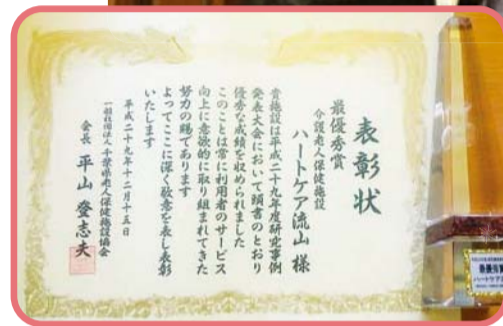 表彰状
最優秀賞
介護老人保健施設
ハートケア流山 様
貴施設は平成二十九年度研究事例
発表大会において頭書のとおり
優秀な成績を収められました
このことは常に利用者のサービス
向上に意欲的に取り組まれてきた
努力の賜であります
よってここに深く敬意を表し表彰
いたします
平成二十九年十二月十五日
一般社団法人 千葉県老人保健施設協会
会長 平山 登志夫
最優秀賞
ハートケア流山